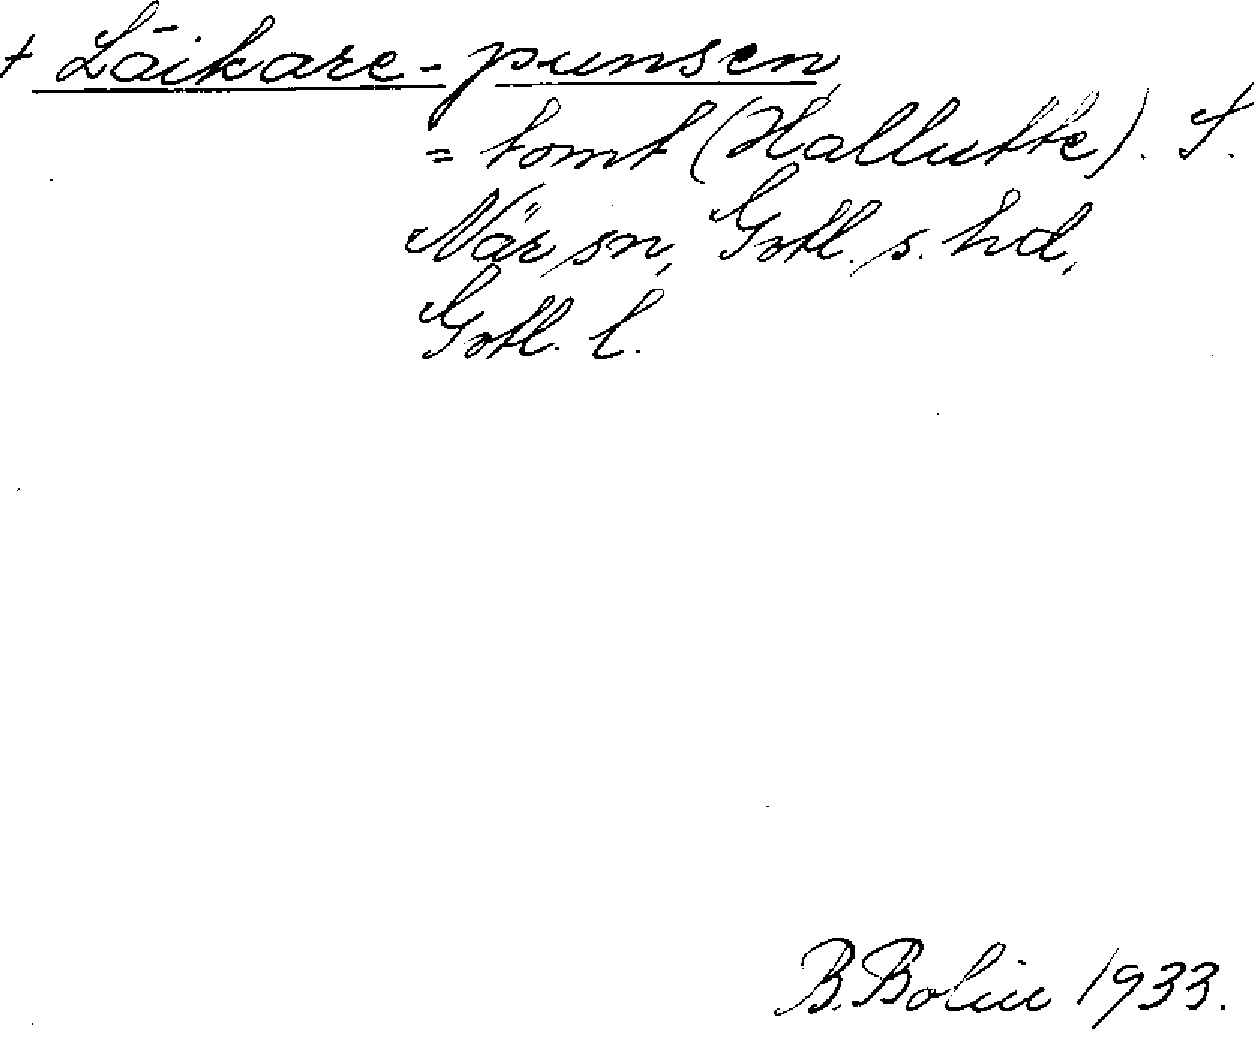 + Läikare-punsen,
= tomt (Hallutte). S.
När sn, Gotl. s. hd,
Gotl. l.
B. Bolin 1933.